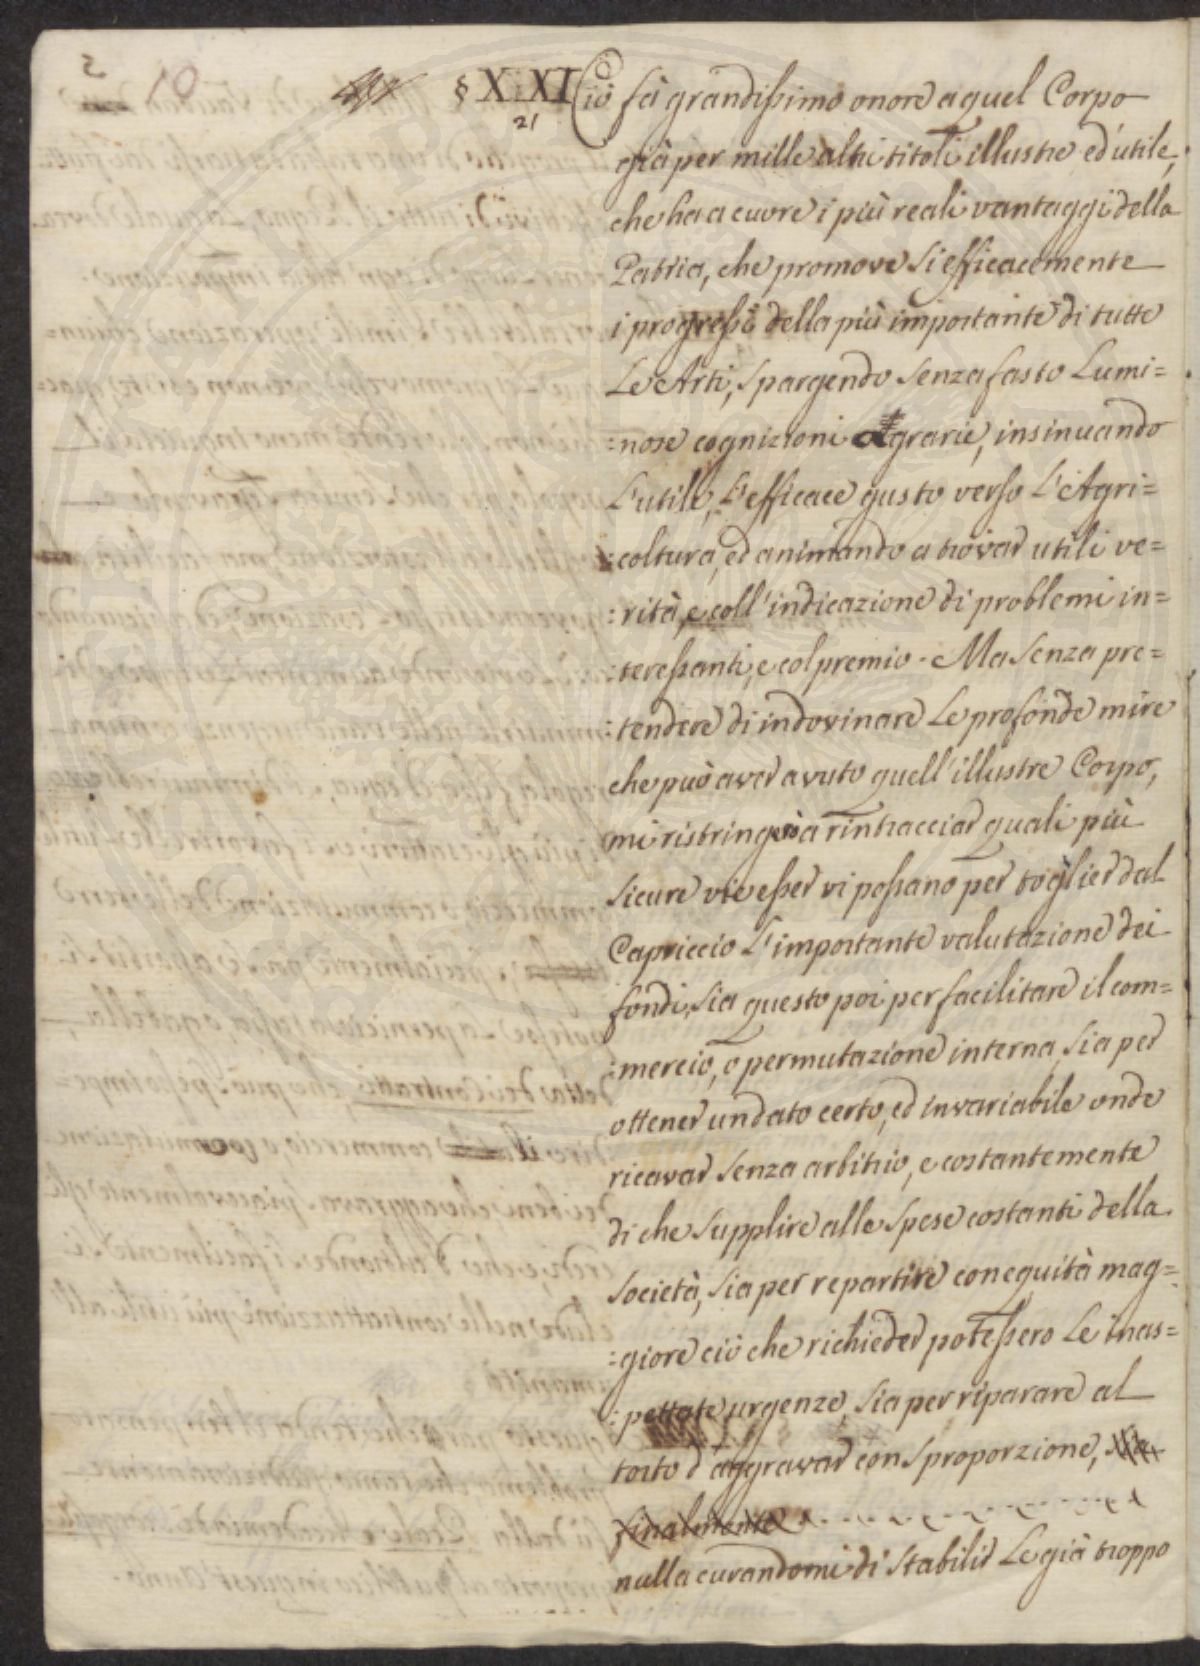 § XXI Ciò fà grandissimo onore a quel Corpo
21
già per mille altri titoli illustre ed utile,
che ha a cuore i più reali vantaggi della
Patria, che promove si efficacemente
i progressi della più importante di tutte
Le Arti, spargendo senza fasto Lumi=
=nose cognizioni agrarie, insinuando
L'utile, L'efficace gusto verso L'Agri=
:coltura, ed animando a trovar utili ve=
:rità, e coll'indicazione di problemi in=
:teressanti, e col premio. Ma senza pre=
:tendere di indovinare Le profonde mire
che può aver avuto quell'illustre Corpo,
mi ristringo a rintracciar quali più
sicure vie esser vi possano per toglier dal
Capriccio L'importante valutazione dei
fondi, sia questo poi per facilitare il com=
:mercio, o permutazione interna, sia per
ottener un dato certo, ed invariabile onde
ricavar senza arbitrio, e costantemente
di che supplire alle spese costanti della
società, sia per repartire con equità mag=
:giore ciò che richieder potessero Le inas=
:pettate urgenze, sia per riparare al
torto d'aggravar con sproporzione, sia
finalmente
nulla curandomi di stabilir Le già troppo